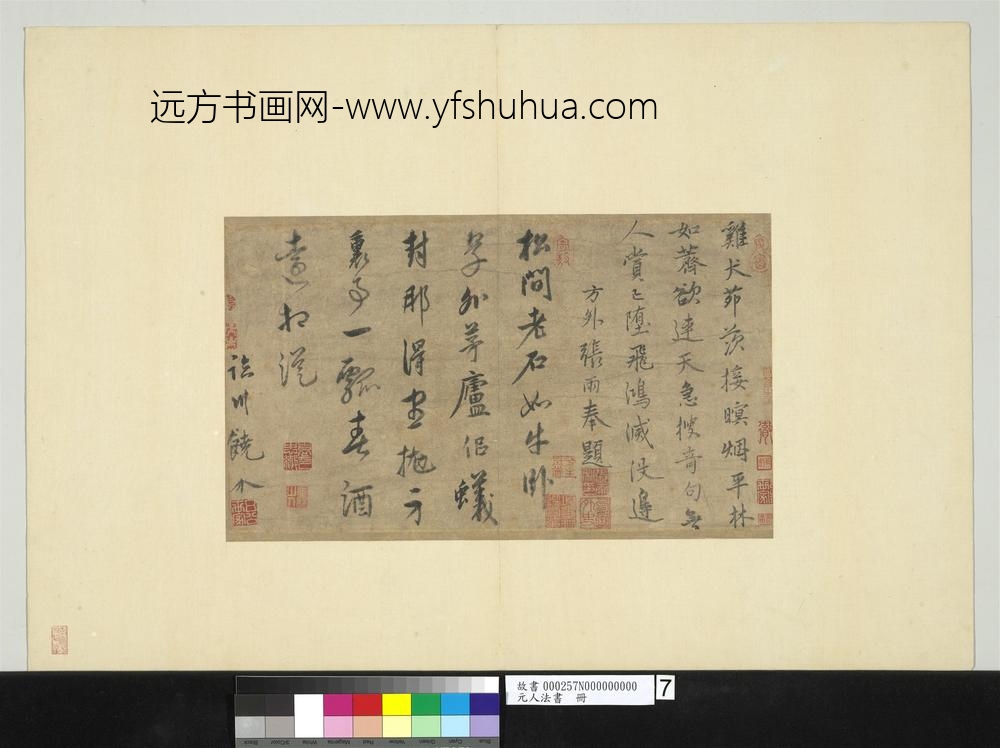 远方书画网-www.yfshuhua.com
雞犬茆茨接暝烟平林
如薺欲連天急搜奇句無
人賞已墮飛鴻滅没邊
方外張雨奉題
松間老石如牛卧
草外茅廬侣蟻
封那得忘拖方
裏事一瓢春酒
遠相從
臨川饒介
故書 000257N000000000
元人法書 冊
7
Black
3/Color
White
Magenta
Red
Yellow
Green
Cyan
Blue